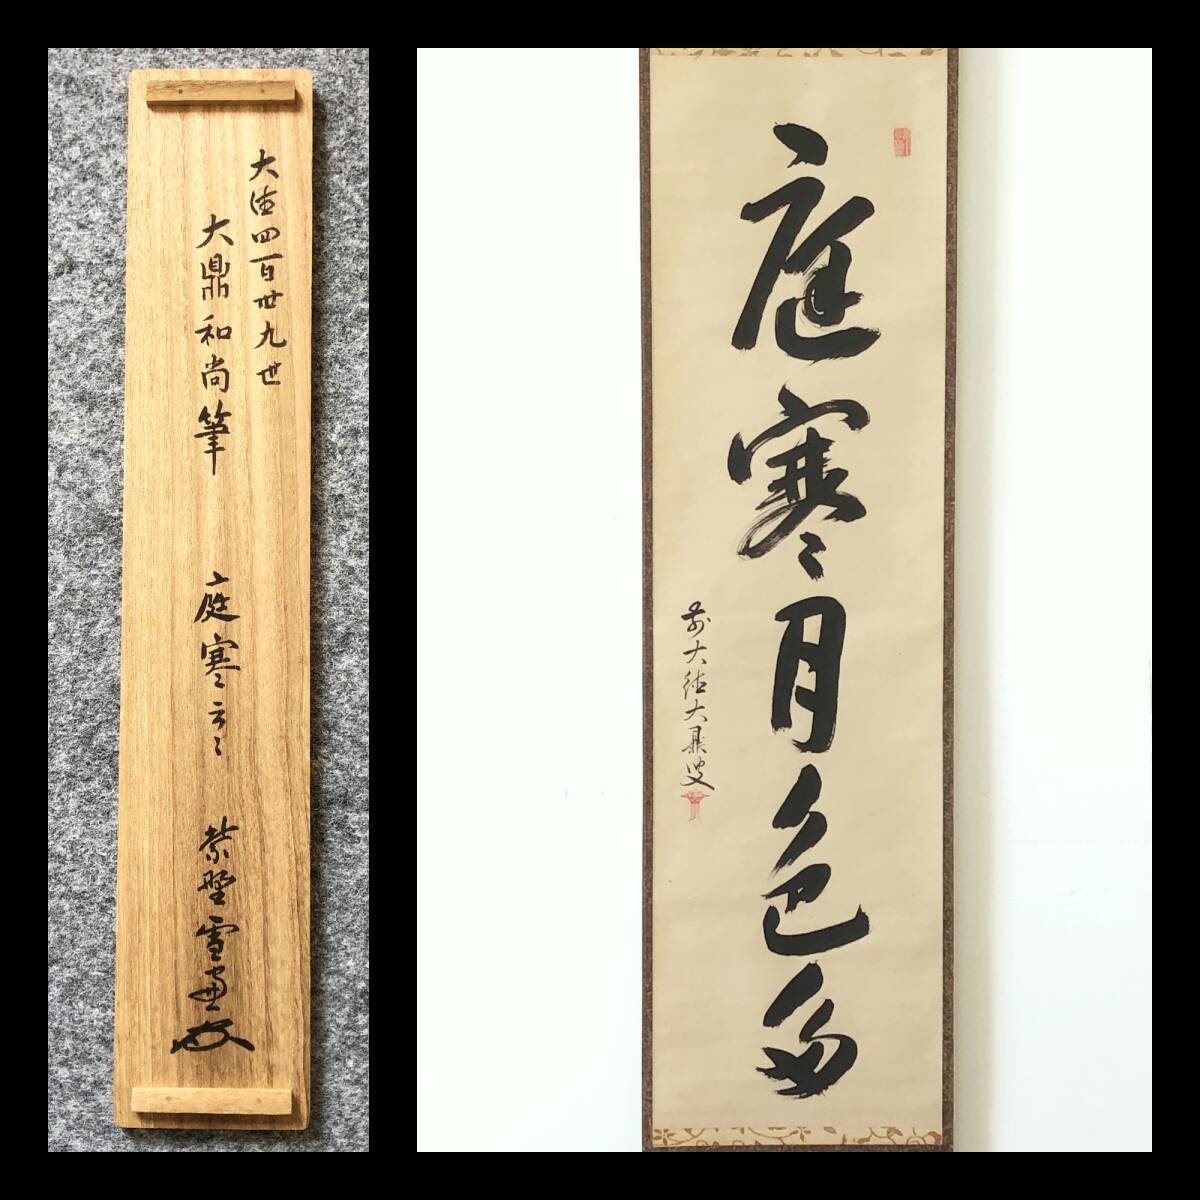 大徳四百卅九世
大鼎和尚筆
庭寒云々
紫野雪
庭寒月色多
前大徳大鼎叟